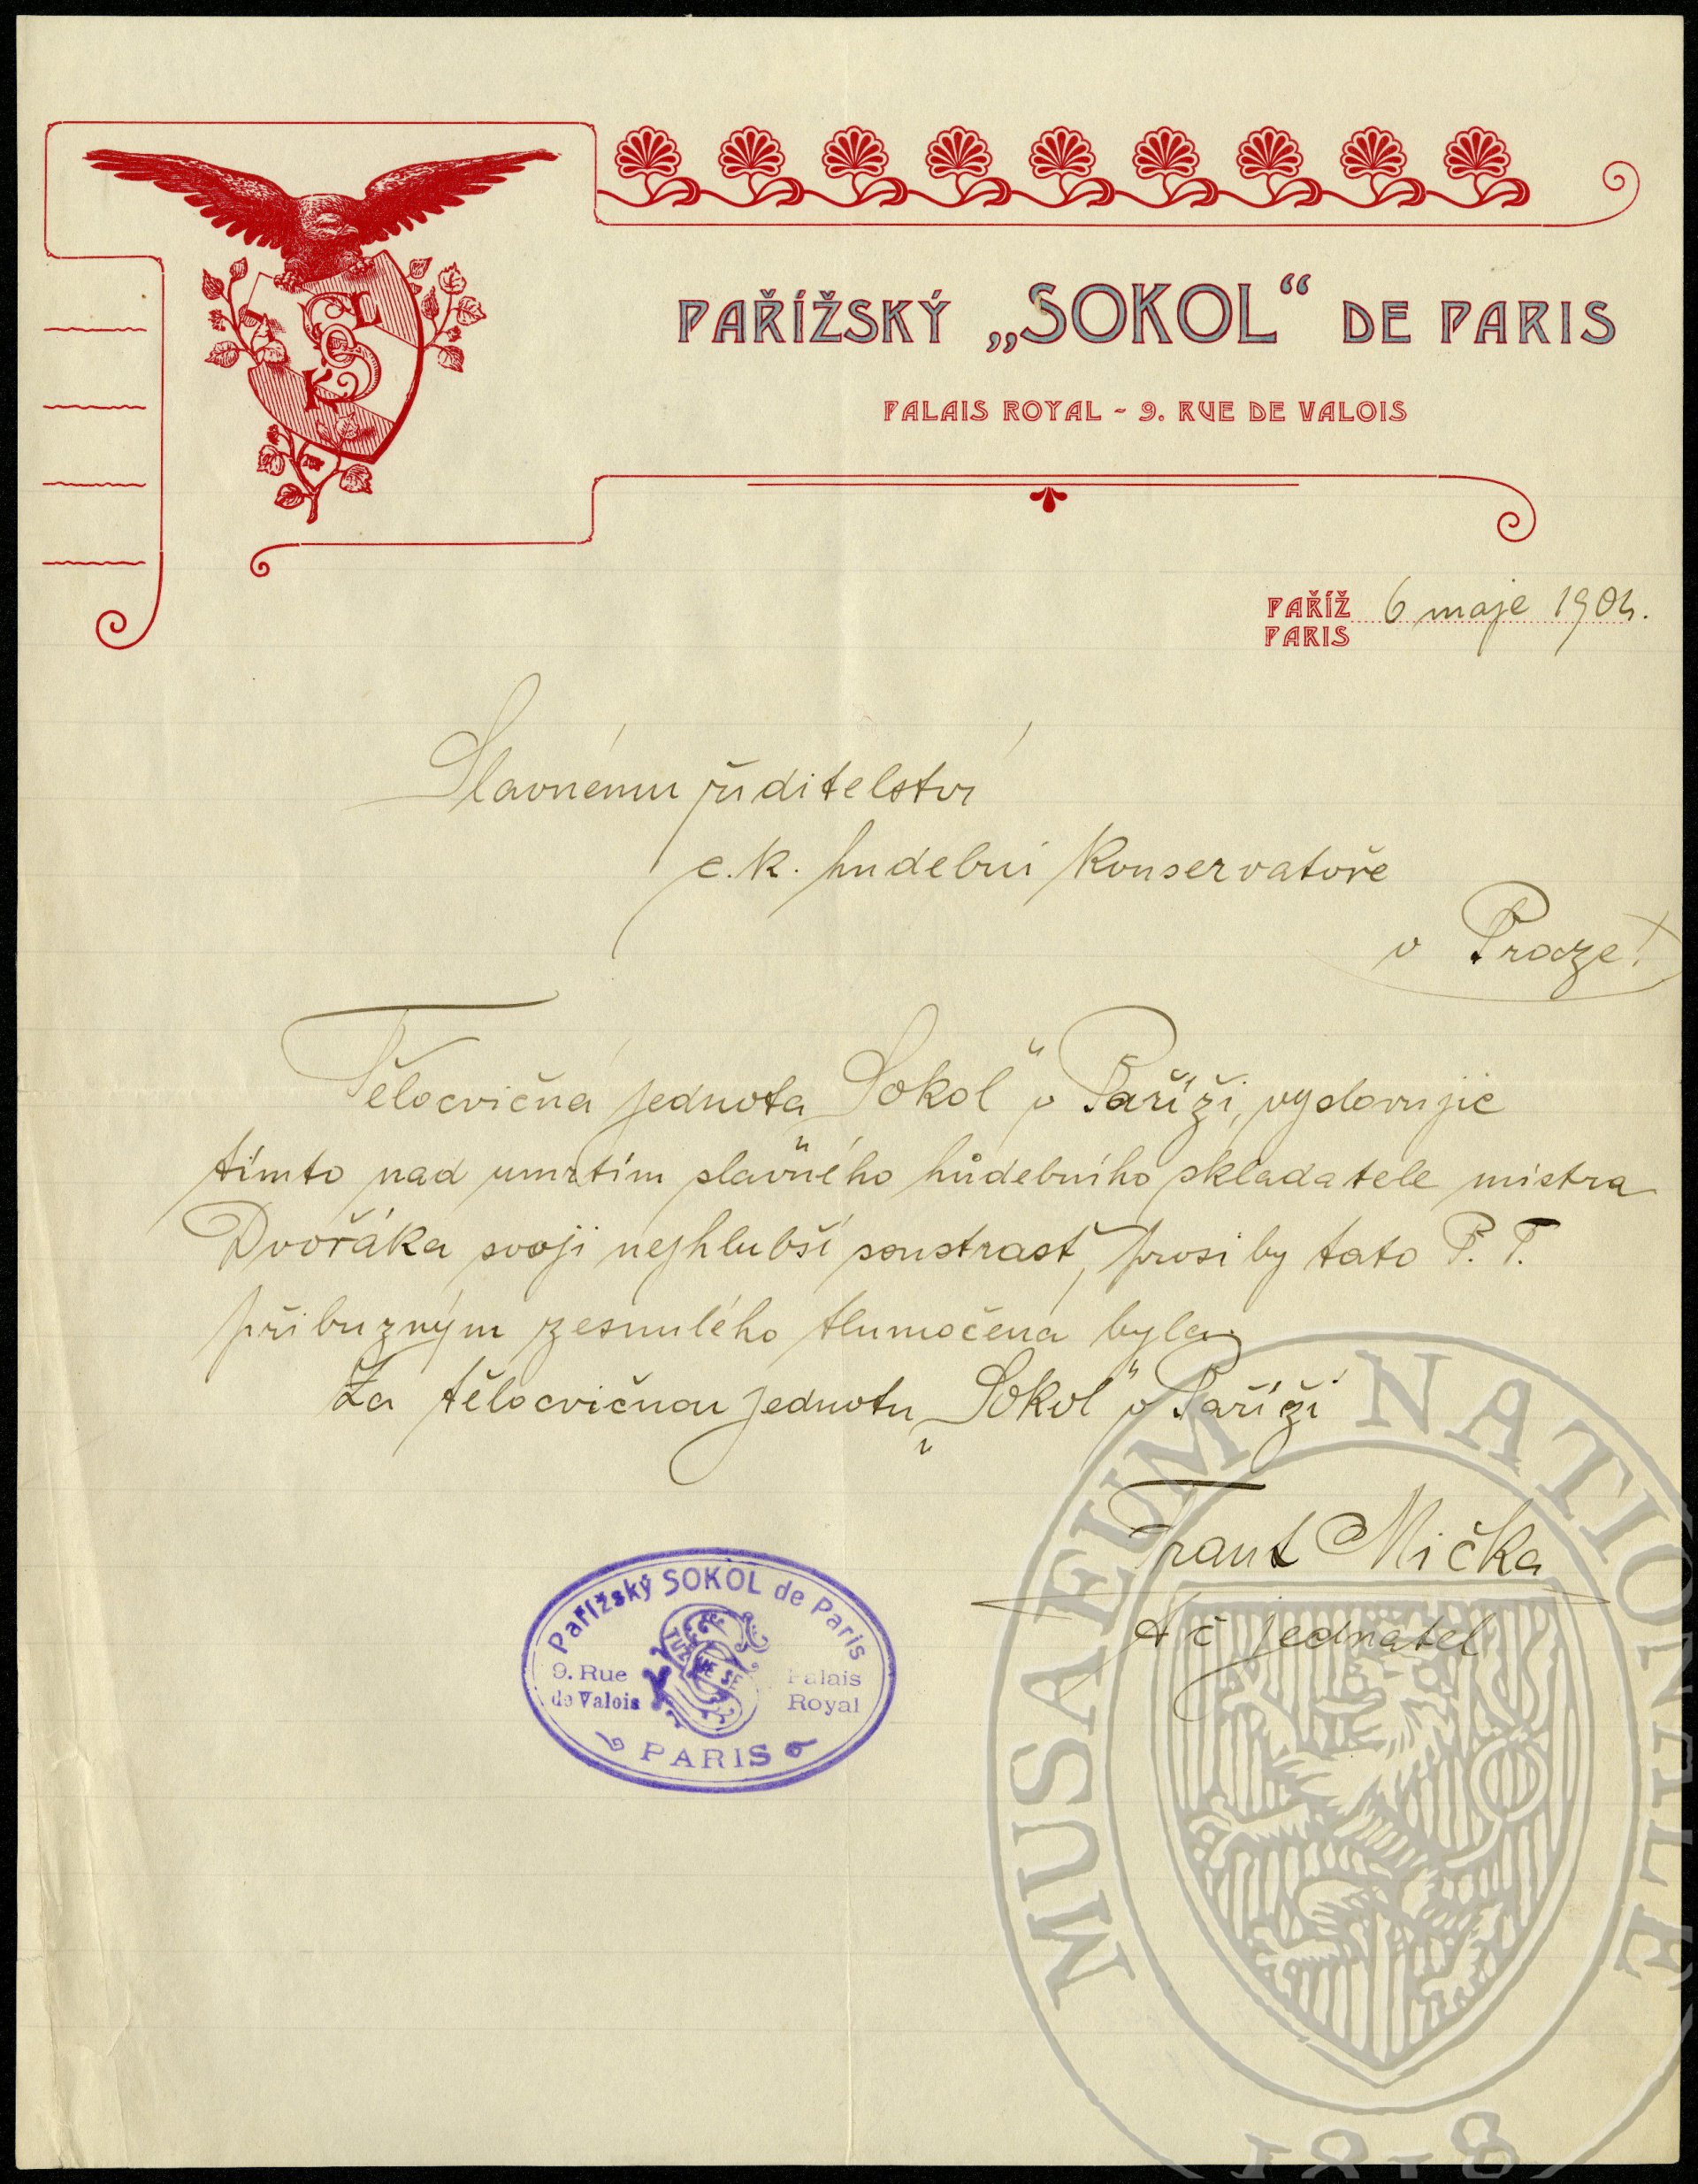 PAŘÍŽSKÝ „SOKOL“ DE PARIS
PALAIS ROYAL - 9. RUE DE VALOIS
PAŘÍŽ
PARIS
6 maje 1904.
Slavnému řiditelství
c. k. hudební Konservatoře
v Praze!
Tělocvičná jednota „Sokol“ v Paříži, vyslovujíc
tímto nad umrtím slavného hůdebního skladatele mistra
Dvořáka svoji nejhlubší soustrast, prosi by tato P. T.
přibuzným zesnulého tlumočena byla
Za tělocvičnou jednotu „Sokol“ v Paříži
Frant Mička
jednatel
Pařížský SOKOL de Paris
9. Rue
de Valois
Palais
Royal
PARIS
MUSAEUM NATIONALE
1818